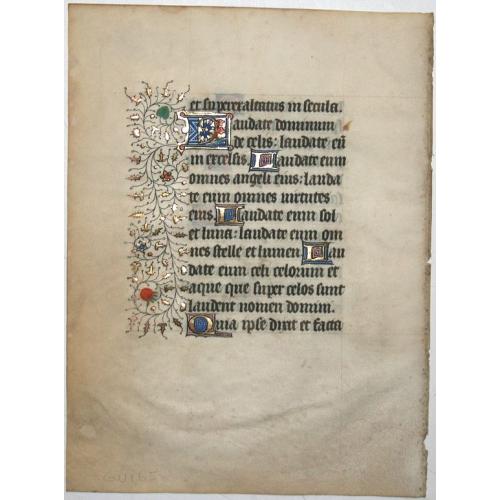 et superexaltatus in secula.
Laudate dominum
de celis: laudate eū
in excelsis. Laudate eum
omnes angeli eius: lauda
te eum omnes uirtutes
eius. Laudate eum sol
et luna: laudate eum om
nes stelle et lumen. Lau
date eum celi celorum et
aque que super celos sunt
laudent nomen domini.
Quia ipse dixit et facta